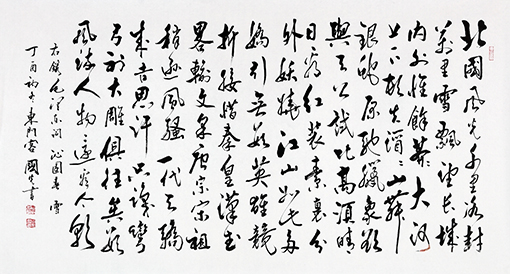 北國風光千里冰封
萬里雪飄望長城
内外惟餘莽莽大河
上下頓失滔滔山舞
銀蛇原馳蠟象欲
與天公試比高須晴
日看紅裝素裹分
外妖嬈江山如此多
嬌引無數英雄競
折腰惜秦皇漢武
畧輸文采唐宗宋祖
稍遜風騷一代天驕
成吉思汗只識彎
弓射大雕俱往矣數
風流人物還看今朝
右錄毛澤東詞沁園春雪
丁酉初冬東門客國書